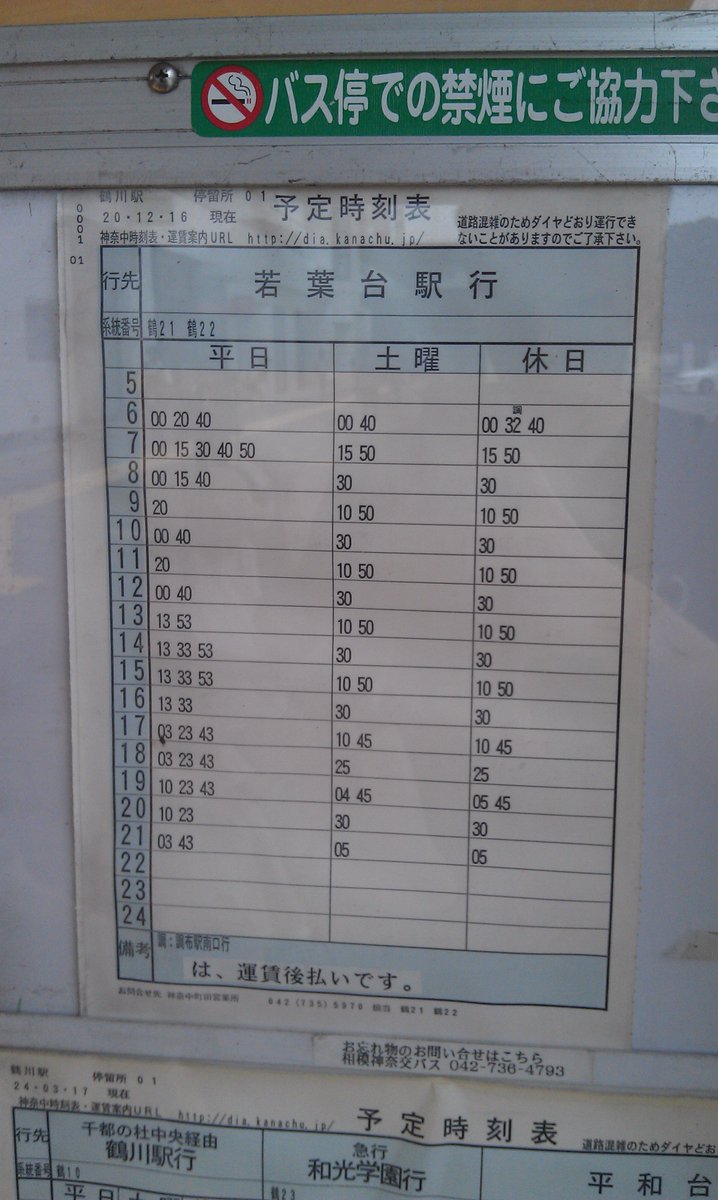 バス停での禁煙にご協力下さ
0001
01
鶴川駅 停留所 01
20・12・16 現在
予定時刻表
神奈中時刻表・運賃案内URL http://dia.kanachu.jp/
道路混雑のためダイヤどおり運行でき
ないことがありますのでご了承下さい。
行先 若葉台駅行
系統番号 鶴21 鶴22
平日 土曜 休日
5
調
6 00 20 40 00 40 00 32 40
7 00 15 30 40 50 15 50 15 50
8 00 15 40 30 30
9 20 10 50 10 50
10 00 40 30 30
11 20 10 50 10 50
12 00 40 30 30
13 13 53 10 50 10 50
14 13 33 53 30 30
15 13 33 53 10 50 10 50
16 13 33 30 30
17 03 23 43 10 45 10 45
18 03 23 43 25 25
19 10 23 43 04 45 05 45
20 10 23 30 30
21 03 43 05 05
22
23
24
備考 調:調布駅南口行
は、運賃後払いです。
お問合せ先 神奈中町田営業所 042(735)5970 担当 鶴21 鶴22
お忘れ物のお問い合せはこちら
相模神奈交バス 042-736-4793
鶴川駅 停留所 01
24-03-17 現在
神奈中時刻表・運賃案内URL http://dia.kanachu.jp/
予定時刻表
道路混雑のためダイヤどお
行先 千都の杜中央経由 鶴川駅行 急行 和光学園行 平和台
系統番号 鶴10 鶴23
平日